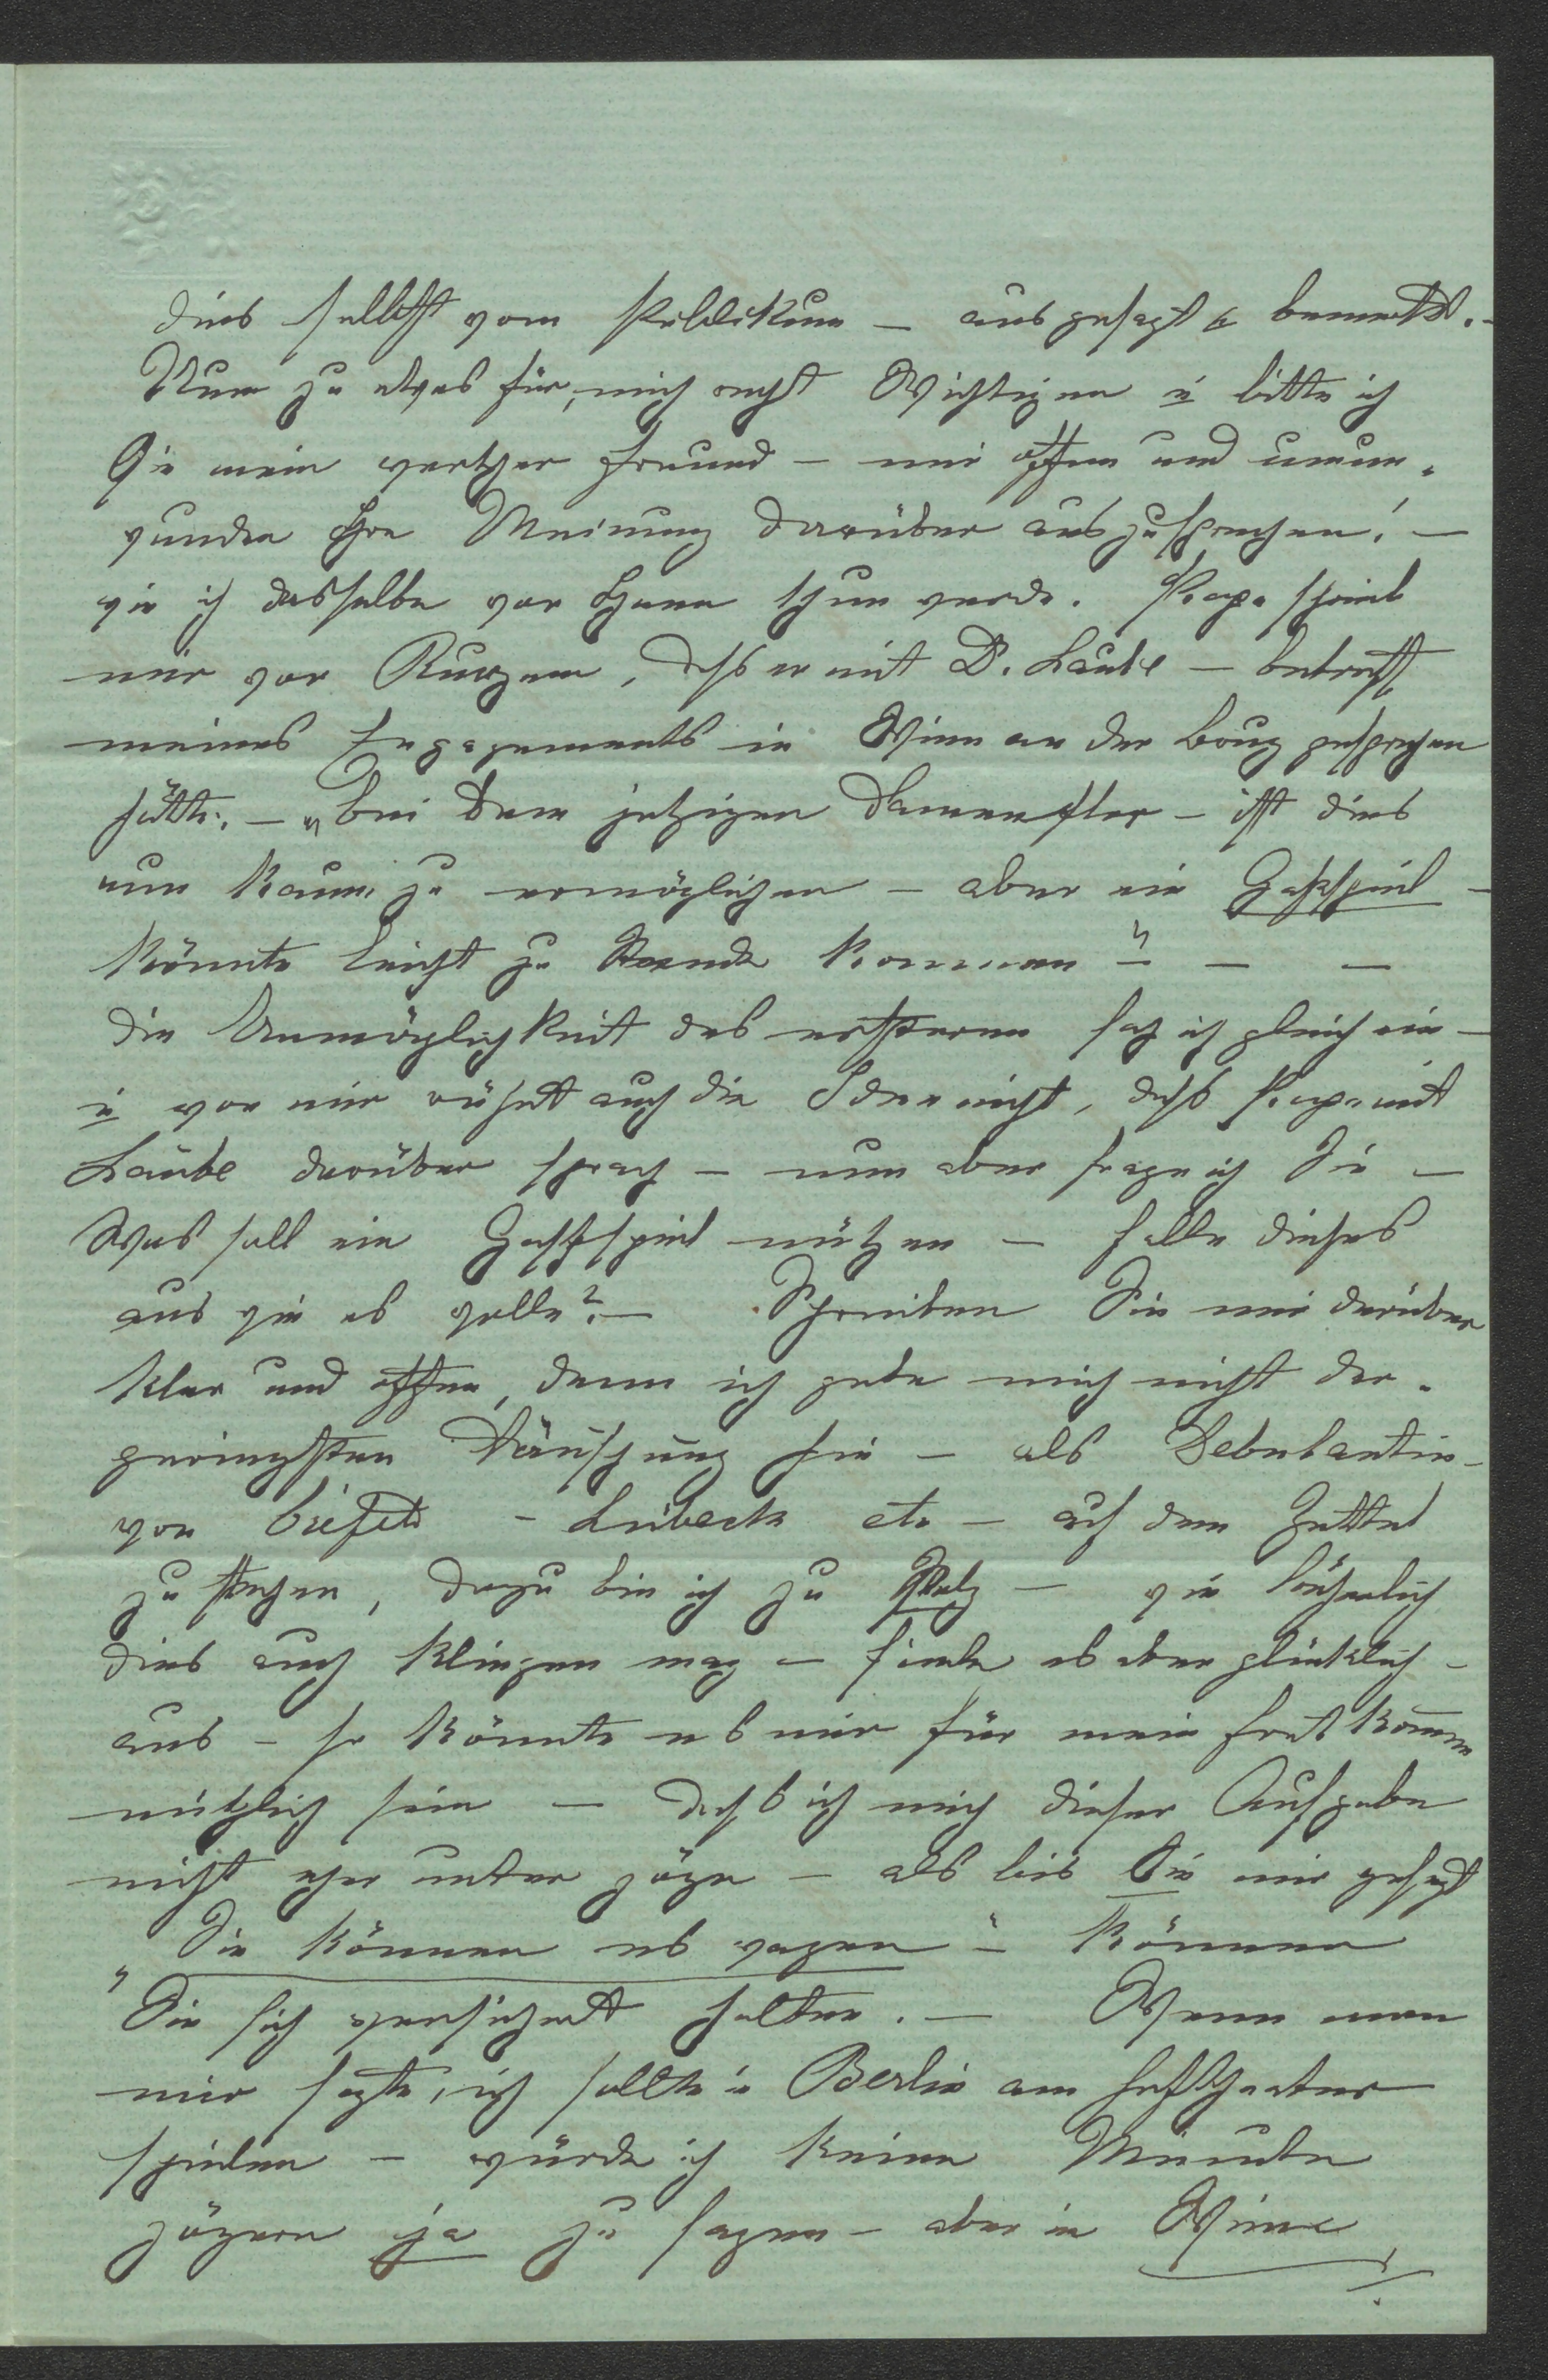 dies selbst vom Publikum – ausgesagt & bemerkt. –
Nun zu etwas für mich recht Wichtigen u bitte ich
Sie mein werther Freund – mir offen und unum-
wunden Ihre Meinung darüber auszusprechen! –
wie ich dasselbe vor Ihnen thun werde. Papa schrieb
mir vor Kurzem, daß er mit D. Laube – betreff
meines Engagements in Wien an der Burg gesprochen
hätte. – „bei dem jetzigen Damenflor – ist dies
nun kaum zu ermöglichen – aber ein Gastspiel –
könnte leicht zu Stande kommen" – –
die Unmöglichkeit des ersteren sah ich gleich ein –
u von mir rührt auch die Idee nicht, daß Papa mit
Laube darüber sprach – nun aber frage ich Sie –
Was soll ein Gastspiel nützen – falle dieses
aus wie es wolle? – Schreiben Sie mir darüber
klar und offen, denn ich gebe mich nicht der
geringsten Täuschung hin – als Debutantin –
von – Lübeck etc – auf dem Zettel
zu stehen, dazu bin ich zu stolz – wie lächerlich
dies auch klingen mag – fiele es aber glücklich –
aus – so könnte es mir für mein Fortkommen
nützlich sein – daß ich mich dieser Aufgabe
nicht eher unter zöge – als bis Sie mir gesagt
„Sie können es wagen" – können
Sie sich versichert halten. – Wenn man
mir sagte, ich sollte in Berlin am Hoftheater
spielen – würde ich keine Minute
zögern ja zu sagen – aber in Wien